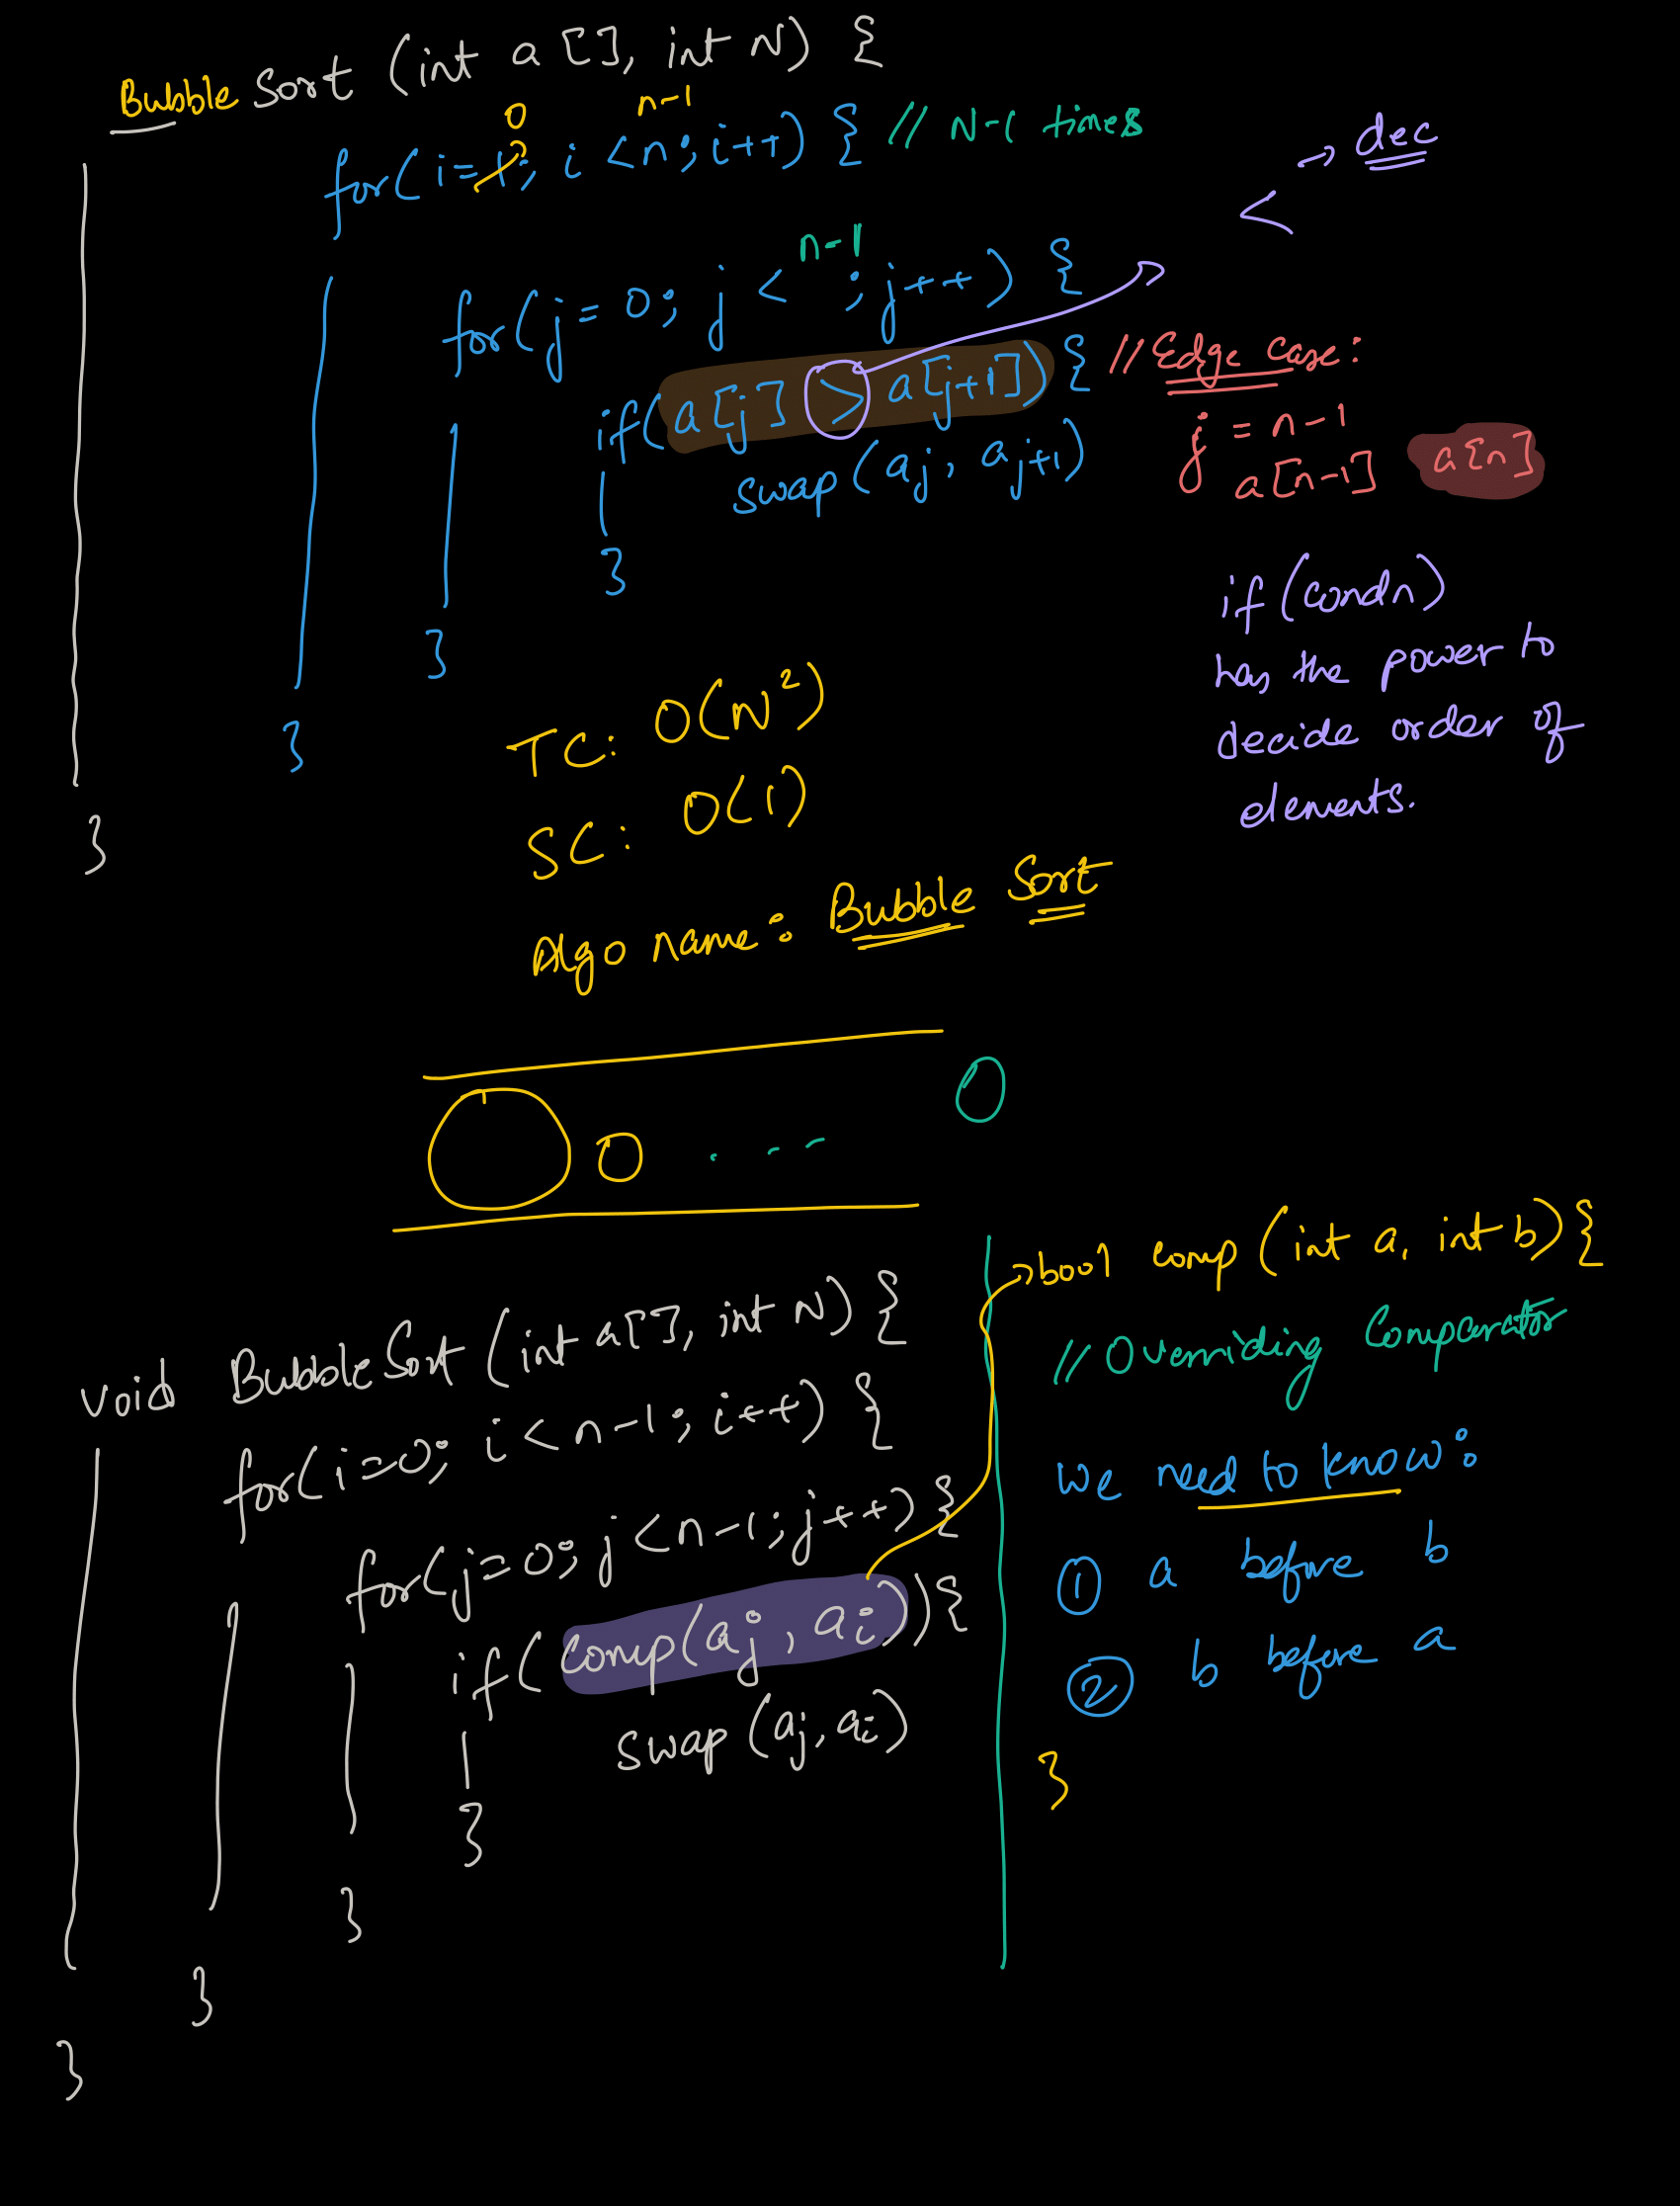 Bubble Sort (int a[], int N) {
0 n-1
for(i=1; i<n; i++) { // N-1 times
→ dec
<
n-1
for(j=0; j< ; j++) {
if(a[j] > a[j+1]) { // Edge Case:
swap(aj, aj+1)
j = n-1
a[n-1] a[n]
}
}
}
}
if(condn)
has the power to
decide order of
elements.
TC: O(N²)
SC: O(1)
Algo name: Bubble Sort
void BubbleSort (int a[], int N) {
for(i=0; i<n-1; i++) {
for(j=0; j<n-1; j++) {
if(comp(aj, ai)) {
swap(aj, ai)
}
}
}
}
bool comp (int a, int b) {
// Overriding Comparator
We need to know:
① a before b
② b before a
}